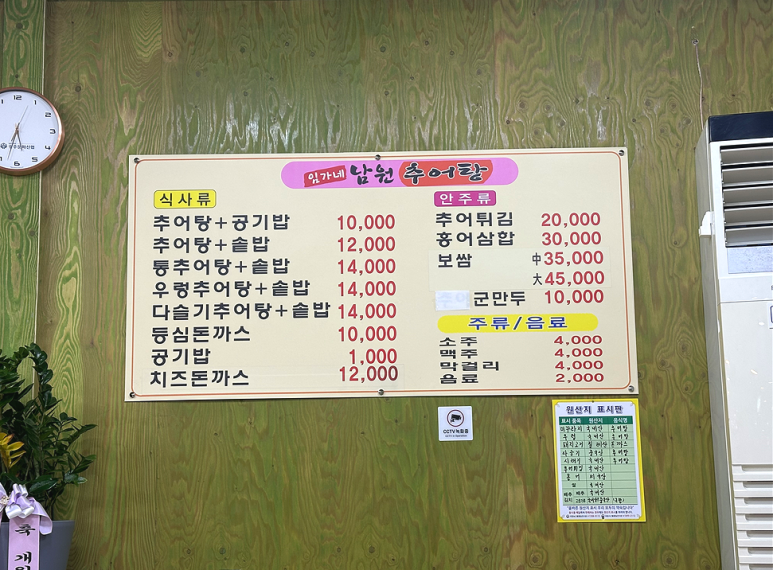 임가네 남원 추어탕
식사류
추어탕+공기밥 10,000
추어탕+솥밥 12,000
통추어탕+솥밥 14,000
우렁추어탕+솥밥 14,000
다슬기추어탕+솥밥 14,000
등심돈까스 10,000
공기밥 1,000
치즈돈까스 12,000
안주류
추어튀김 20,000
홍어삼합 30,000
보쌈 中 35,000
大 45,000
군만두 10,000
주류/음료
소주 4,000
맥주 4,000
막걸리 4,000
음료 2,000
CCTV 녹화중
원산지 표시판
표시품목 원산지 음식명
미꾸라지 국내산 추어탕
국내산
돈까스
국내산
국내산
쌀 국내산
배추 국내산
김치
축